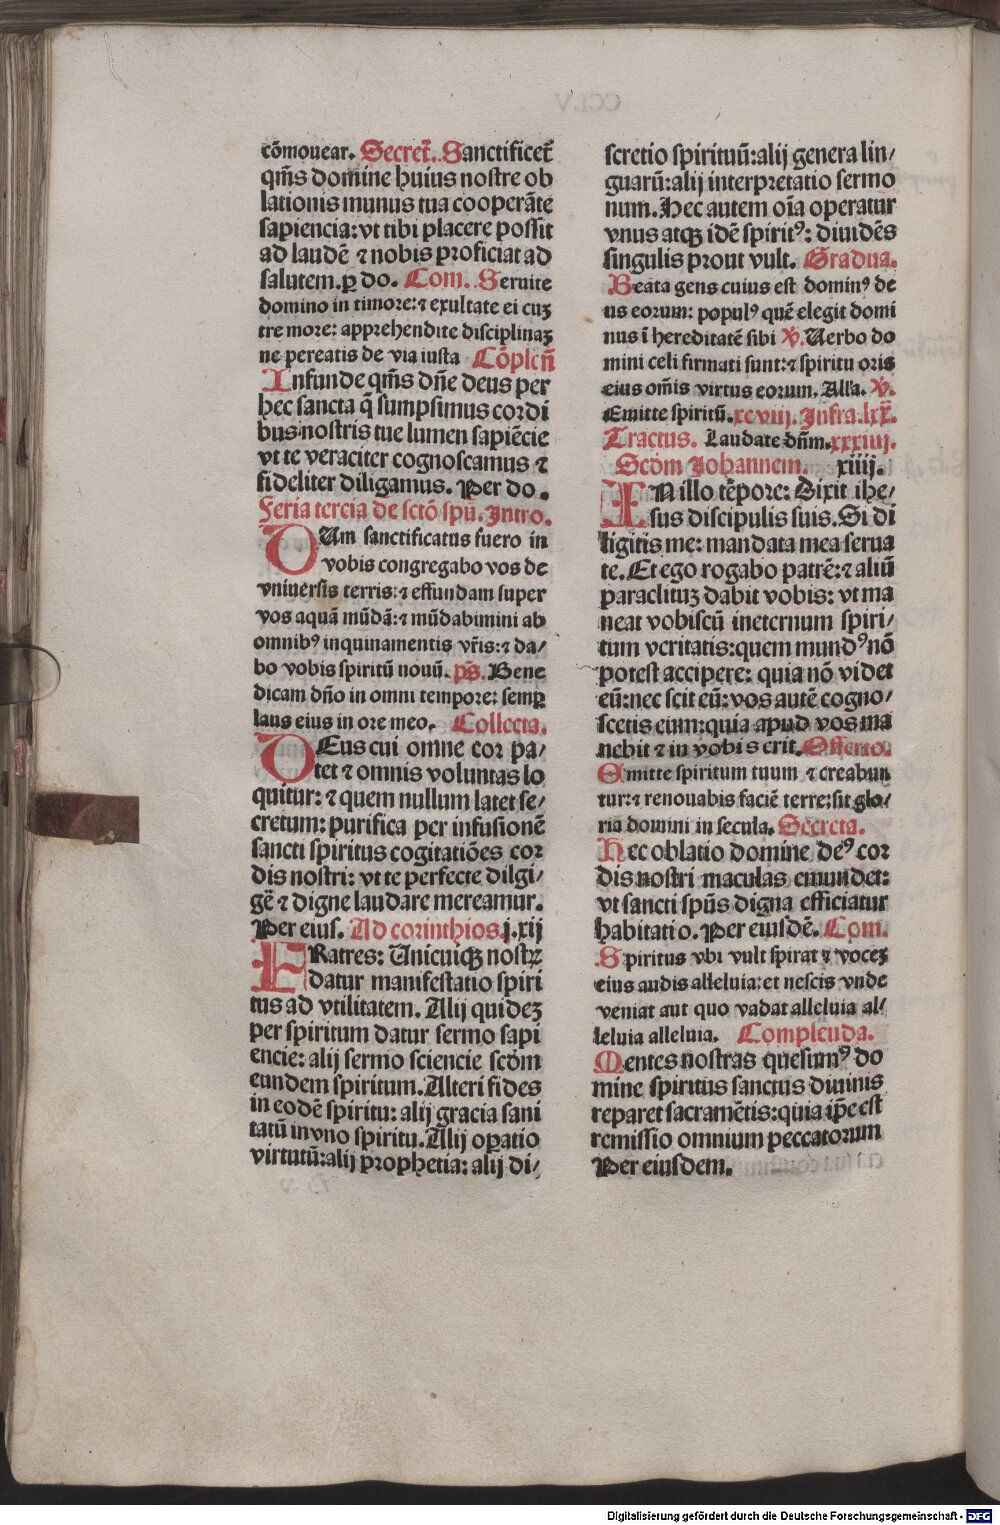 cōmouear. Secret̄. Sanctificet̄
qm̄s domine huius nostre ob
lationis munus tua cooperāte
sapiencia: vt tibi placere possit
ad laudē ⁊ nobis proficiat ad
salutem. ꝑ do. Com. Seruite
domino in timore: ⁊ exultate ei cuꝫ
tremore: apprehendite disciplinaꝫ
ne pereatis de via iusta Cōplen̄
Infunde qm̄s dn̄e deus per
hec sancta q̄ sumpsimus cordi
bus nostris tue lumen sapiēcie
vt te veraciter cognoscamus ⁊
fideliter diligamus. Per do.
Feria tercia de sctō spū. Intro.
DUm sanctificatus fuero in
vobis congregabo vos de
vniuersis terris: ⁊ effundam super
vos aquā mūdā: ⁊ mūdabimini ab
omnibꝰ inquinamentis vr̄is: ⁊ da/
bo vobis spiritū nouū. ps̄. Bene
dicam dn̄o in omni tempore: semꝑ
laus eius in ore meo. Collecta.
DEus cui omne cor pa/
tet ⁊ omnis voluntas lo
quitur: ⁊ quem nullum latet se/
cretum: purifica per infusionē
sancti spiritus cogitatiōes cor
dis nostri: vt te perfecte dilgi/
gē ⁊ digne laudare mereamur.
Per eius. Ad corinthios. j. xij
FRatres: Unicuiqꝫ nostꝝ
datur manifestatio spiri
tus ad vtilitatem. Alij quideꝫ
per spiritum datur sermo sapi
encie: alij sermo sciencie scd̄m
eundem spiritum. Alteri fides
in eodē spiritu: alij gracia sani
tatū in vno spiritu. Alij oꝑatio
virtutū: alij prophetia: alij di/
scretio spirituū: alij genera lin/
guarū: alij interpretatio sermo
num. Hec autem oīa operatur
vnus atqꝫ idē spiritꝰ: diuidēs
singulis prout vult. Gradua.
Beata gens cuius est dominꝰ de
us eorum: populꝰ quē elegit domi
nus ī hereditatē sibi ꝟ. Uerbo do
mini celi firmati sunt: ⁊ spiritu oris
eius om̄is virtus eorum. Alla. ꝟ.
Emitte spiritū. xcviij. Infra. lxx̄.
Tractus. Laudate dn̄m. xxxiiij.
Scd̄m Johannem. xiiij.
IN illo tēpore: Dixit ihe/
sus discipulis suis. Si di
ligitis me: mandata mea serua
te. Et ego rogabo patrē: ⁊ aliū
paraclituꝫ dabit vobis: vt ma
neat vobiscū ineternum spiri/
tum veritatis: quem mundꝰ nō
potest accipere: quia nō videt
eū: nec scit eū: vos autē cogno/
scetis eum: quia apud vos ma
nebit ⁊ in vobis erit. Offerto.
Emitte spiritum tuum ⁊ creabun
tur: ⁊ renouabis faciē terre: sit glo/
ria domini in secula. Secreta.
Hec oblatio domine deꝰ cor
dis nostri maculas emundet:
vt sancti spūs digna efficiatur
habitatio. Per eiusdē. Com.
Spiritus vbi vult spirat ⁊ voceꝫ
eius audis alleluia: et nescis vnde
veniat aut quo vadat alleluia al/
leluia alleluia. Complenda.
Mentes nostras quesumꝰ do
mine spiritus sanctus diuinis
reparet sacramētis: quia ip̄e est
remissio omnium peccatorum
Per eiusdem.
Digitalisierung gefördert durch die Deutsche Forschungsgemeinschaft - DFG